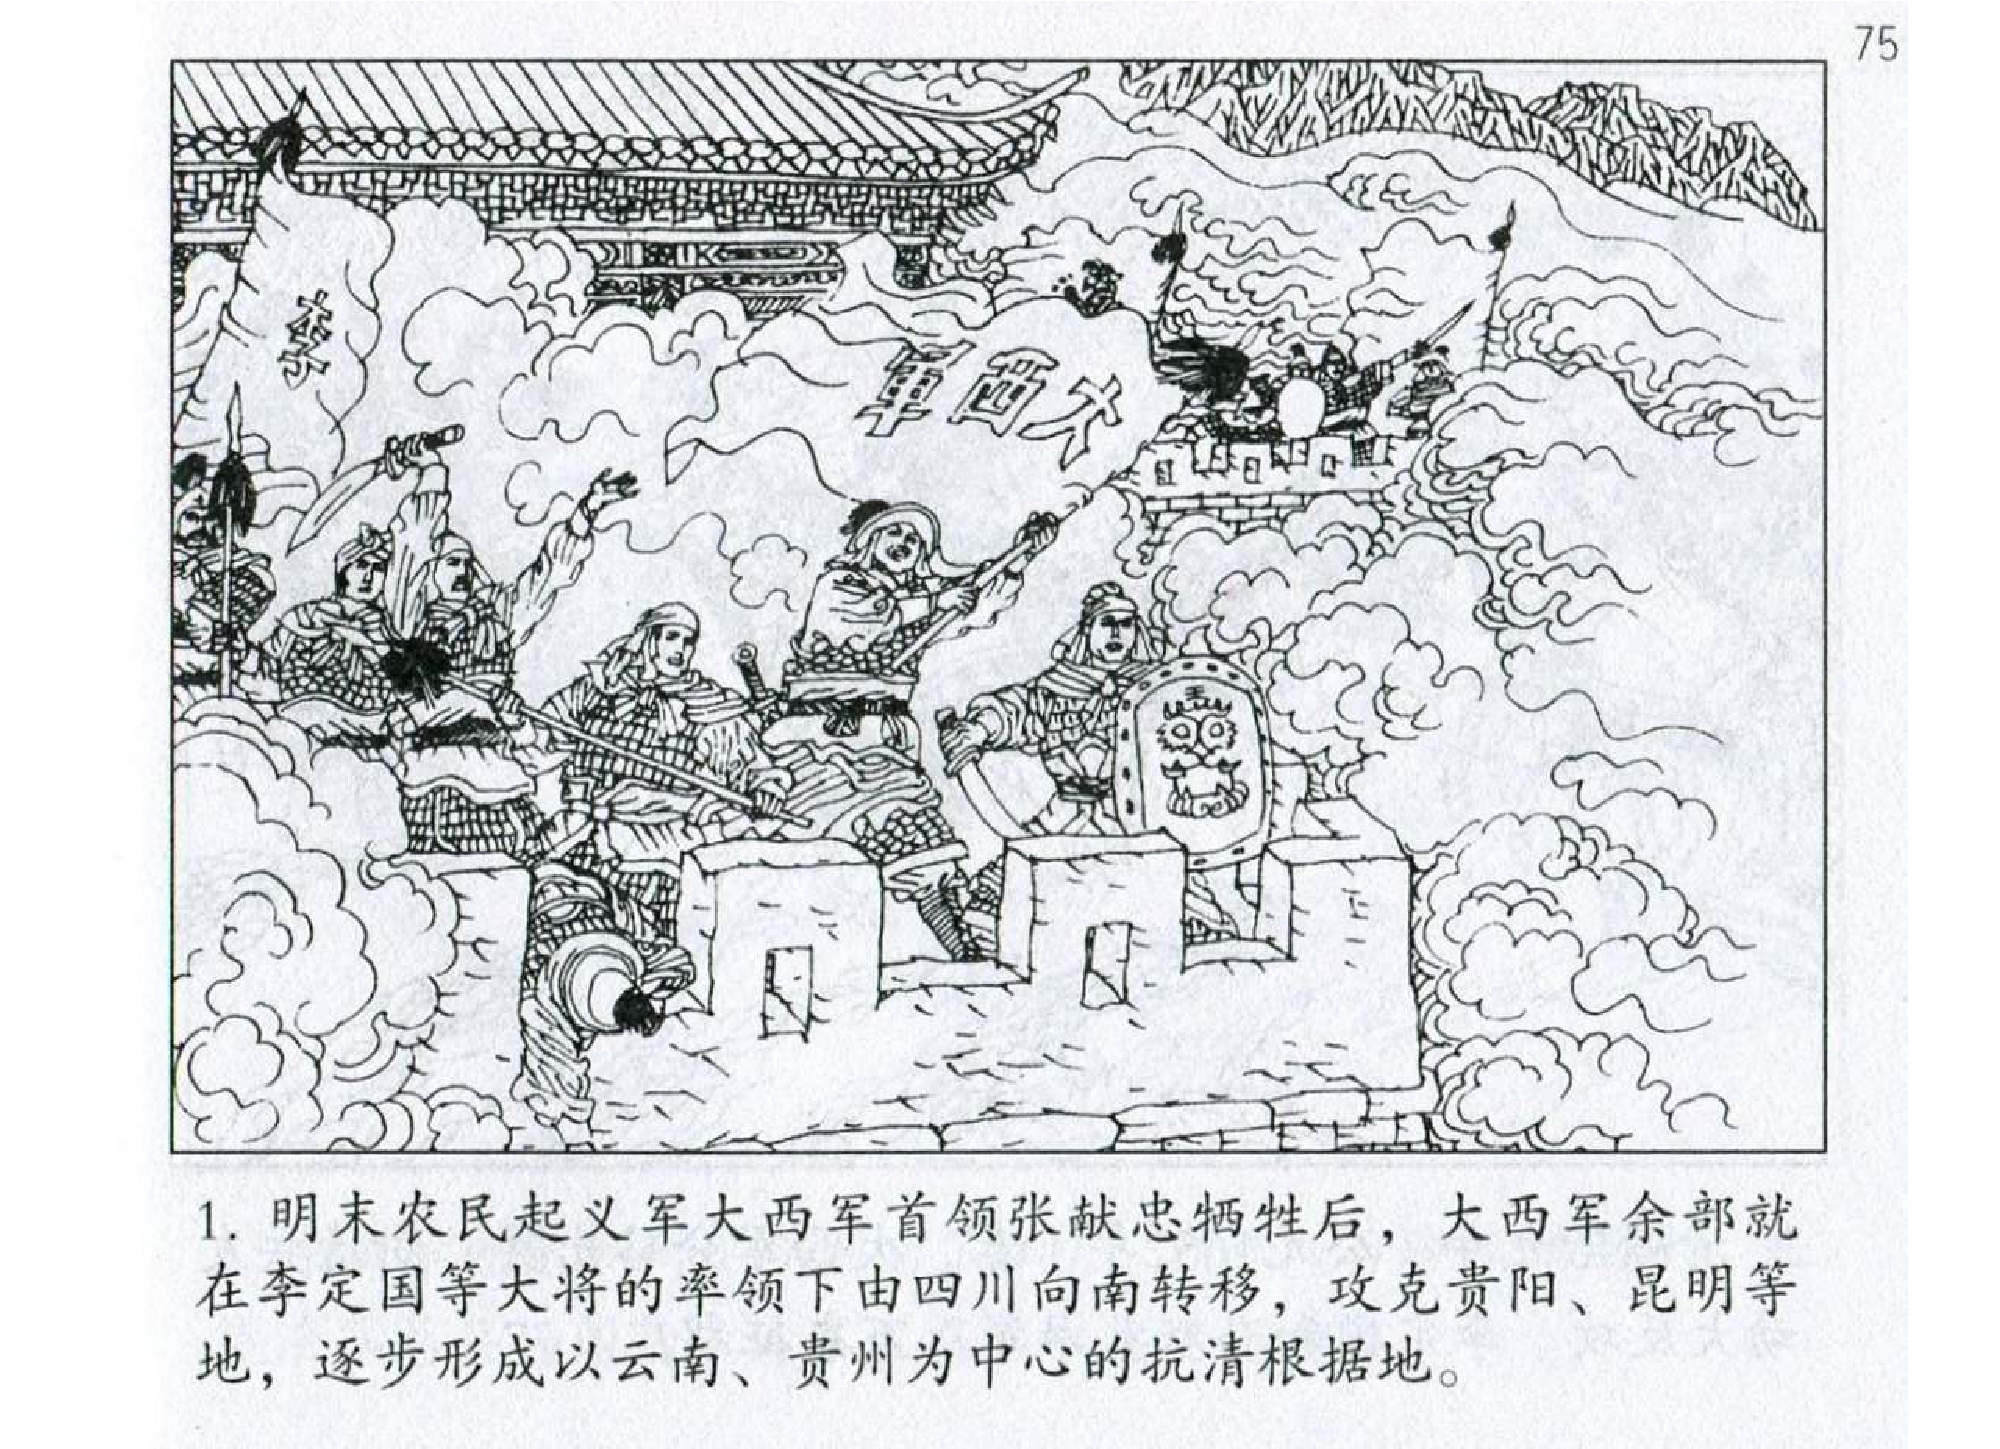 75
李
大西軍
王
1. 明末农民起义军大西军首领张献忠牺牲后，大西军余部就
在李定国等大将的率领下由四川向南转移，攻克贵阳、昆明等
地，逐步形成以云南、贵州为中心的抗清根据地。